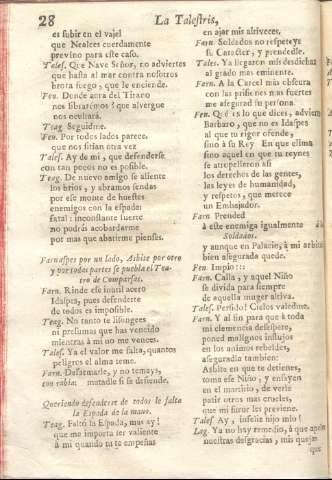 28
La Talestris,
es subir en el vajel
que Nealces cuerdamente
previno para este caso.
Tales. Que Nave Señor, no adviertes
que hasta al mar contra nosotros
brota fuego, que le enciende.
Fen. Donde ama del Tirano
nos libraremos? que alvergue
nos ocultará.
Teag. Seguidme.
Fen. Por todos lados parece.
que nos sitian otra vez
Tales. Ay de mi, que defenderse
con tan pocos no es posible.
Teag. De nuevo amigo se aliente
los brios, y abramos sendas
por ese monte de huestes
enemigos con la espada:
fatal: inconstante suerte
no podrás acobardarme
por mas que abatirme pienses.
Farnaspes por un lado, Asbite por otro
y por todas partes se puebla el Tea-
tro de Comparsas.
Farn. Rinde ese inutil acero
Idaspes, pues defenderte
de todos es imposible.
Teag. No tanto te lisongees
ni presumas que has vencido
mientras á mi no me vences.
Tales. Ya el valor me falta, quantos
peligros el alma teme.
Farn. Desarmarle, y no temays,
con rabia: matadle si se defiende.
Queriendo defenderse de todos le falta
la Espada de la mano.
Teag. Faltó la Espada, mas ay!
que me importa ser valiente
á mi quando tu te empeñas
en ajar mis altiveces.
Farn. Soldados no respeteys
su Caracter, y prendedle.
Tales. Ya llegaron mis desdichas
al grado mas eminente.
Farn. A la Carcel mas obscura
con las prisiones mas fuertes
me asegurad su persona.
Fen. Que es lo que dices, advierte
Barbaro, que no es Idaspes
al que tu rigor ofende,
sino á su Rey En que clima
sino aquel en que tu reynes
se atropelleron asi
los derechos de las gentes,
las leyes de humanidad,
y respetos, que merece
un Embajador.
Farn Prended
à este enemiga igualmente
Soldados.
y aunque en Palacio, á mi arbitrio
bien asegurada quede.
Fen. Impio!!!
Farn. Calla, y aquel Niño
se divida para siempre
de aquella muger altiva.
Tales. Perfido! Cielos valedme.
Farn. Y al fin para que à toda
mi clemencia desespere,
poned malignos influjos
en los animos rebeldes,
aseguradla tambien:
Asbite en que te detienes,
toma ese Niño, y ensayen
en el martirio, de verle
patir otros mas crueles,
que mi furor les previene.
Tales. Ay, infeliz hijo mio!
Lag. Ya no hay remedio, á que
nuestras desgracias, mis quejas
que